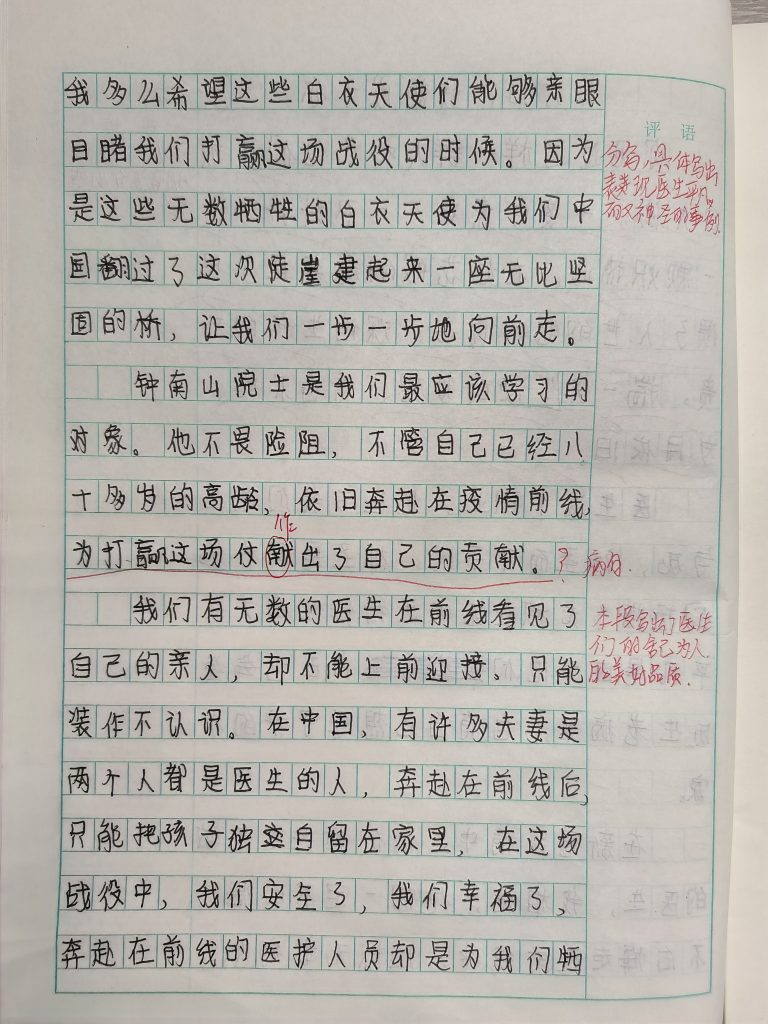 我多么希望这些白衣天使们能够亲眼
目睹我们打赢这场战役的时候。因为
是这些无数牺牲的白衣天使为我们中
国翻过了这次陡崖建起来一座无比坚
固的桥，让我们一步一步地向前走。
钟南山院士是我们最应该学习的
对象。他不畏险阻，不管自己已经八
十多岁的高龄，依旧奔赴在疫情前线，
作
为打赢这场仗献出了自己的贡献。？
我们有无数的医生在前线看见了
自己的亲人，却不能上前迎接。只能
装作不认识。在中国，有许多夫妻是
两个人都是医生的人，奔赴在前线后，
只能把孩子独立自留在家里，在这场
战役中，我们安全了，我们幸福了，
奔赴在前线的医护人员却是为我们牺
评 语
分写，具体写出
表现医生平凡
而又神圣的事例
病句.
本段写出了医生
们的舍己为人
的美好品质.